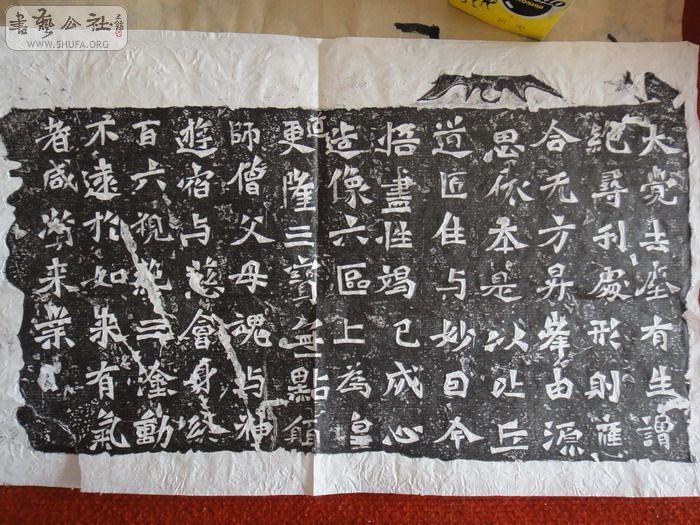 書藝公社
WWW.SHUFA.ORG
大覺去塵有生謂
絕尋刹處形則應
合无方昇峯由源
思依本是以比丘
道匠住与妙因今
悟盡性竭己成心
造像六區上為皇
道更隆三寶無點願
師僧父母魂与神
遊宿与慈會身終
百六視絕三塗動
不遠於如来有氣
者咸来業